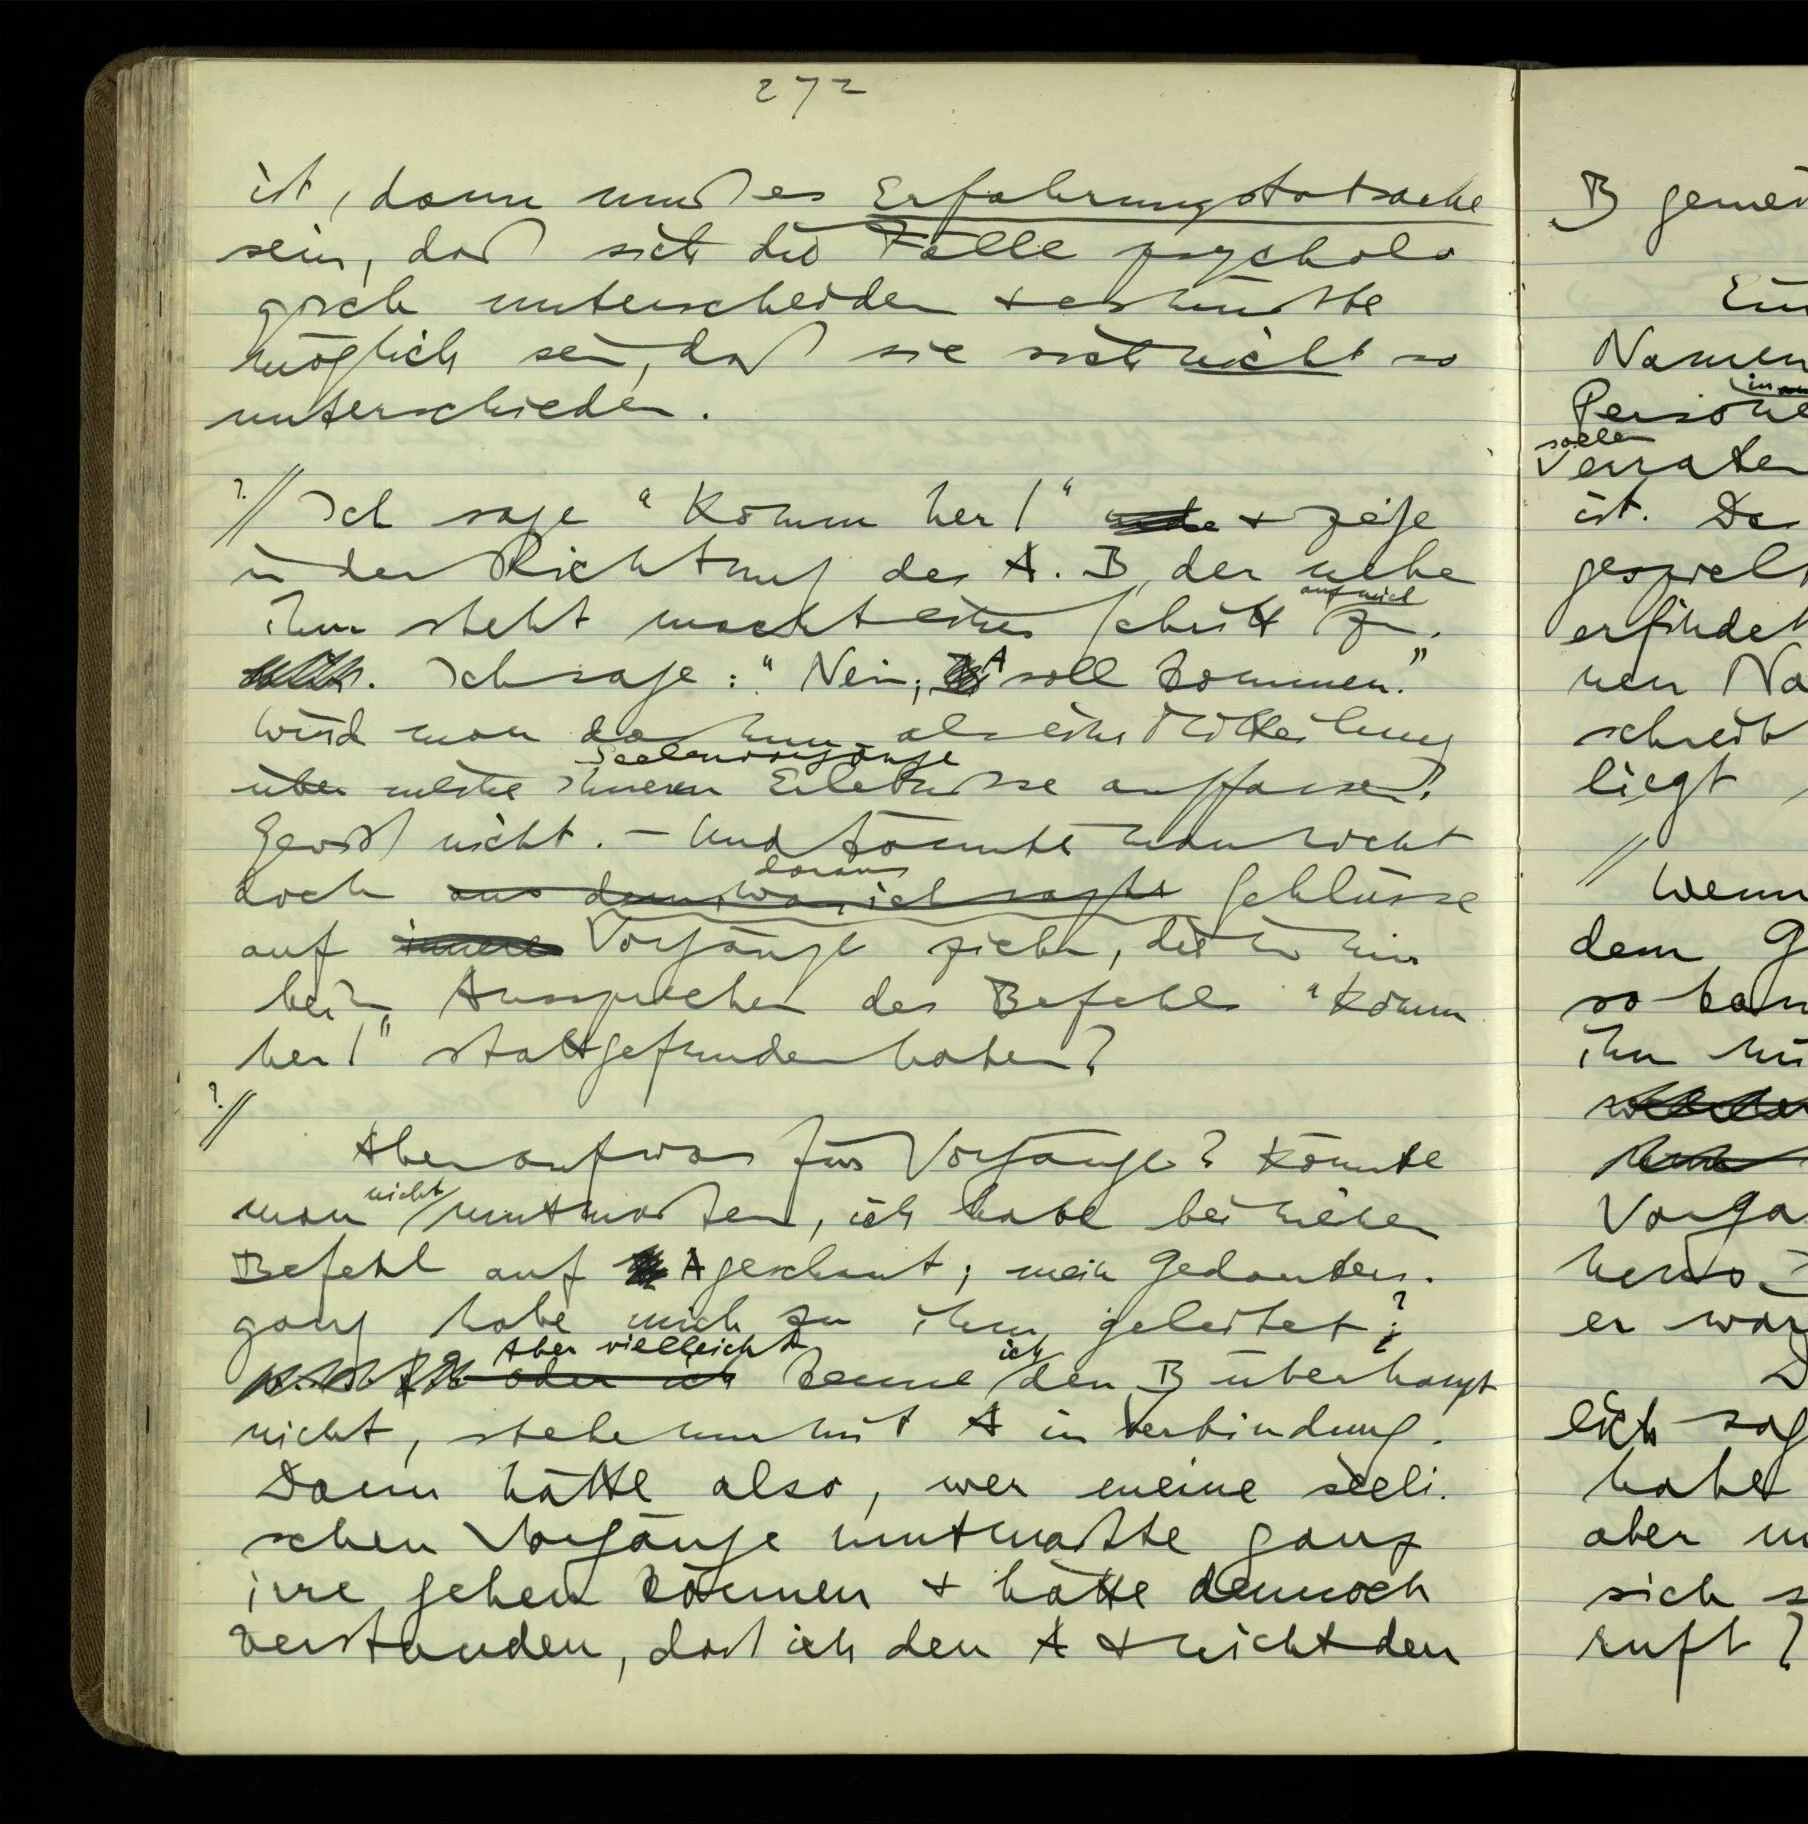 272
ist, dann muß es Erfahrungstatsache
sein, daß sich die Fälle psycholo
gisch unterscheiden + es müßte
möglich sein, daß sie sich nicht so
unterschieden.
?// Ich sage "Komm her!" + zeige
in der Richtung des A. B, der nebe
ihm steht macht einen Schritt auf mich zu.
Ich sage: "Nein; A soll kommen."
Wird man das nun als eine Mitteilung
über meine inneren Erlebnisse auffassen?
Seelenvorgänge
Gewiß nicht. – Und könnte man nicht
doch aus dem, was ich sagte Schlüsse
daraus
auf innere Vorgänge ziehn, die in mir
beim Aussprechen des Befehls "Komm
her!" stattgefunden haben?
?//
Aber auf was für Vorgänge? Könnte
man nicht mutmaßen, ich habe bei meinem
Befehl auf A geschaut; mein Gedanken-
gang habe mich zu ihm geleitet?
Aber vielleicht
oder ich kenne ich den B überhaupt
nicht, stehe nur mit A in Verbindung.
Dann hätte also, wer meine seeli-
schen Vorgänge mutmaßte ganz
irre gehen können + hätte dennoch
verstanden, daß ich den A + nicht den
B
Namen
Persone
sollen
verraten
ist.
gespielt
erfindet
nen Na
schreib
liegt
//
Wenn
dem G
so kan
ihn
Vorga
er war
lich sag
habe
aber
sich s
ruft?